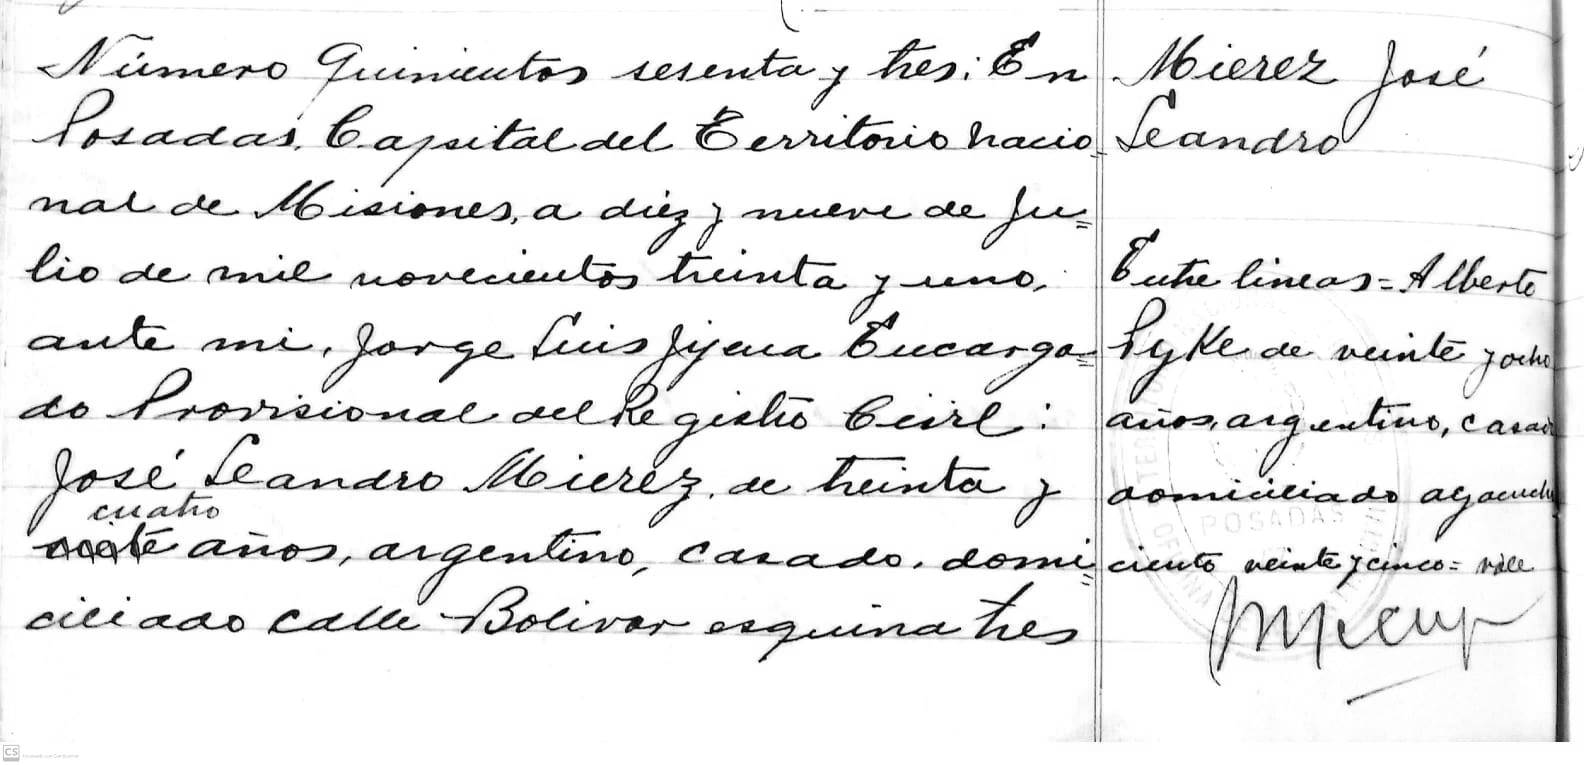 Número Quinientos sesenta y tres: En
Posadas, Capital del Territorio nacio=
nal de Misiones, a diéz y nueve de Ju=
lio de mil novecientos treinta y uno,
ante mi, Jorge Luis Jijena Encarga=
do Provisional del Registro Civil:
José Leandro Mierez, de treinta y
cuatro
años, argentino, casado, domi=
ciliado calle Bolivar esquina tres
Mierez José
Leandro
Entre lineas = Alberto
Pyke de veinte y ocho
años, argentino, casado
domiciliado ayacucho
ciento veinte y cinco = vale
POSADAS
CS